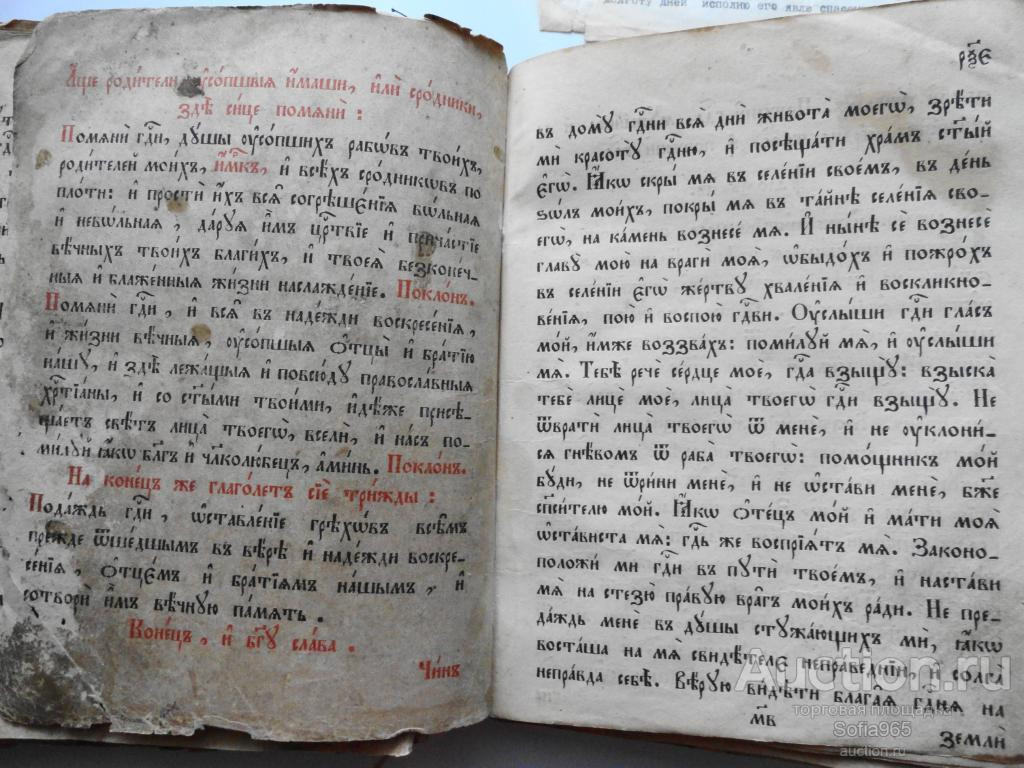 долготу дней исполню его явле спасен
А҆́ще роди́тели ᲂу҆со́пшыѧ и҆́маши, и҆лѝ сро́дники,
здѣ̀ си́це помѧнѝ :
Помѧнѝ гдⷭ҇и, дꙋ́шы ᲂу҆со́пшихъ рабѡ́въ твои́хъ,
роди́телей мои́хъ, и҆́мкъ, и҆ всѣ́хъ сро́дникѡвъ по
пло́ти: и҆ простѝ и҆̀хъ всѧ̑ согрѣшє́нїѧ вѡ́льнаѧ
и҆ невѡ́льнаѧ , да́рꙋѧ и҆̀мъ црⷭ҇твїе и҆ прича́стїе
вѣ́чныхъ твои́хъ благи́хъ, и҆ твоеѧ̀ безконе́ч-
ныѧ и҆ блаже́нныѧ жи́зни наслажде́нїе. Покло́нъ.
Помѧнѝ гдⷭ҇и , и҆ всѧ̑ въ наде́жди воскресе́нїѧ,
и҆ жи́зни вѣ́чныѧ, ᲂу҆со́пшыѧ ѻ҆тцы̀ и҆ бра́тїю
на́шꙋ, и҆ здѣ̀ лежа́щыѧ и҆ повсю́дꙋ правосла́вныѧ
хрⷭ҇тїа́ны, и҆ со ст҃ы́ми твои́ми, и҆дѣ́же присѣ-
ща́етъ свѣ́тъ лица̀ твоегѡ̀, вселѝ, и҆ на́съ по-
ми́лꙋй ꙗ҆́кѡ бл҃гъ и҆ чл҃колю́бецъ, а҆ми́нь. Покло́нъ.
На коне́цъ же глаго́летъ сїѐ три́жды :
Пода́ждь гдⷭ҇и, ѡ҆ставле́нїе грѣхѡ́въ всѣ̑мъ
пре́жде ѿше́дшымъ въ вѣ́рѣ и҆ наде́жди воскре-
се́нїѧ , ѻ҆тцє́мъ и҆ бра́тїѧмъ на́шымъ , и҆
сотворѝ и҆̀мъ вѣ́чнꙋю па́мѧть .
Коне́цъ , и҆ бг҃ꙋ сла́ва .
Чи́нъ
въ домꙋ̀ гдⷭ҇ни всѧ̑ дни̑ живота̀ моегѡ̀, зрѣ́ти
мѝ красотꙋ̀ гдⷭ҇ню, и҆ посѣща́ти хра́мъ ст҃ы́й
є҆гѡ̀. Ꙗ҆́кѡ скры́ мѧ въ селе́нїи свое́мъ, въ де́нь
ѕѡ́лъ мои́хъ, покры́ мѧ въ та́йнѣ селе́нїѧ сво-
егѡ̀, на ка́мень вознесе́ мѧ. И҆ ны́нѣ сѐ вознесѐ
главꙋ̀ мою̀ на врагѝ моѧ̑, ѡ҆быдо́хъ и҆ пожро́хъ
въ селе́нїи є҆гѡ̀ же́ртвꙋ хвале́нїѧ и҆ воскликно-
ве́нїѧ, пою̀ и҆ воспою̀ гдⷭ҇ви. Оу҆слы́ши гдⷭ҇и гла́съ
мо́й, и҆́мже воззва́хъ: поми́лꙋй мѧ̀, и҆ ᲂу҆слы́ши
мѧ̀. Тебѣ̀ речѐ се́рдце моѐ, гдⷭ҇а взыщꙋ̀: взыска̀
тебѐ лицѐ моѐ, лица̀ твоегѡ̀ гдⷭ҇и взыщꙋ̀. Не
ѿвратѝ лица̀ твоегѡ̀ ѿ менѐ, и҆ не ᲂу҆клони́-
сѧ гнѣ́вомъ ѿ раба̀ твоегѡ̀: помо́щникъ мо́й
бꙋ́ди, не ѿри́ни менѐ, и҆ не ѡ҆ста́ви менѐ, бж҃е
сп҃си́телю мо́й. Ꙗ҆́кѡ ѻ҆те́цъ мо́й и҆ ма́ти моѧ̀
ѡ҆ста́виста мѧ̀: гдⷭ҇ь же воспрїѧ́тъ мѧ̀. Законо-
положи́ ми гдⷭ҇и въ пꙋтѝ твое́мъ, и҆ наста́ви
мѧ̀ на стезю̀ пра́вꙋю вра̑гъ мои́хъ ра́ди. Не пре-
да́ждь менѐ въ дꙋ́шы стꙋжа́ющихъ мѝ, ꙗ҆́кѡ
воста́ша на мѧ̀ свидѣ́телє непра́веднїи, и҆ солга̀
непра́вда себѣ̀. Вѣ́рꙋю ви́дѣти блага̑ѧ гдⷭ҇нѧ на
м҃в
землѝ
Auction.ru
торговая площадка
Sofia965
auction.ru